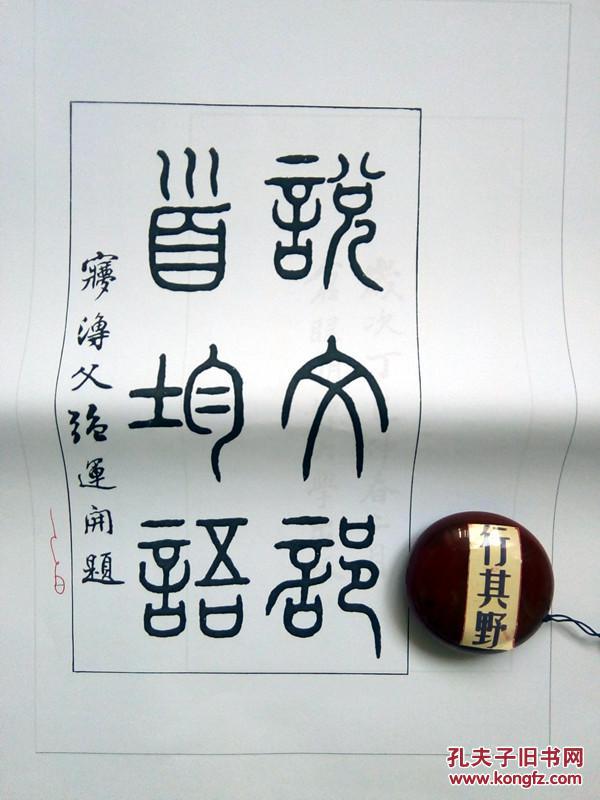 說文部
首均語
㝱漙父強運開題
歲次丁
行其野
孔夫子旧书网
www.kongfz.com